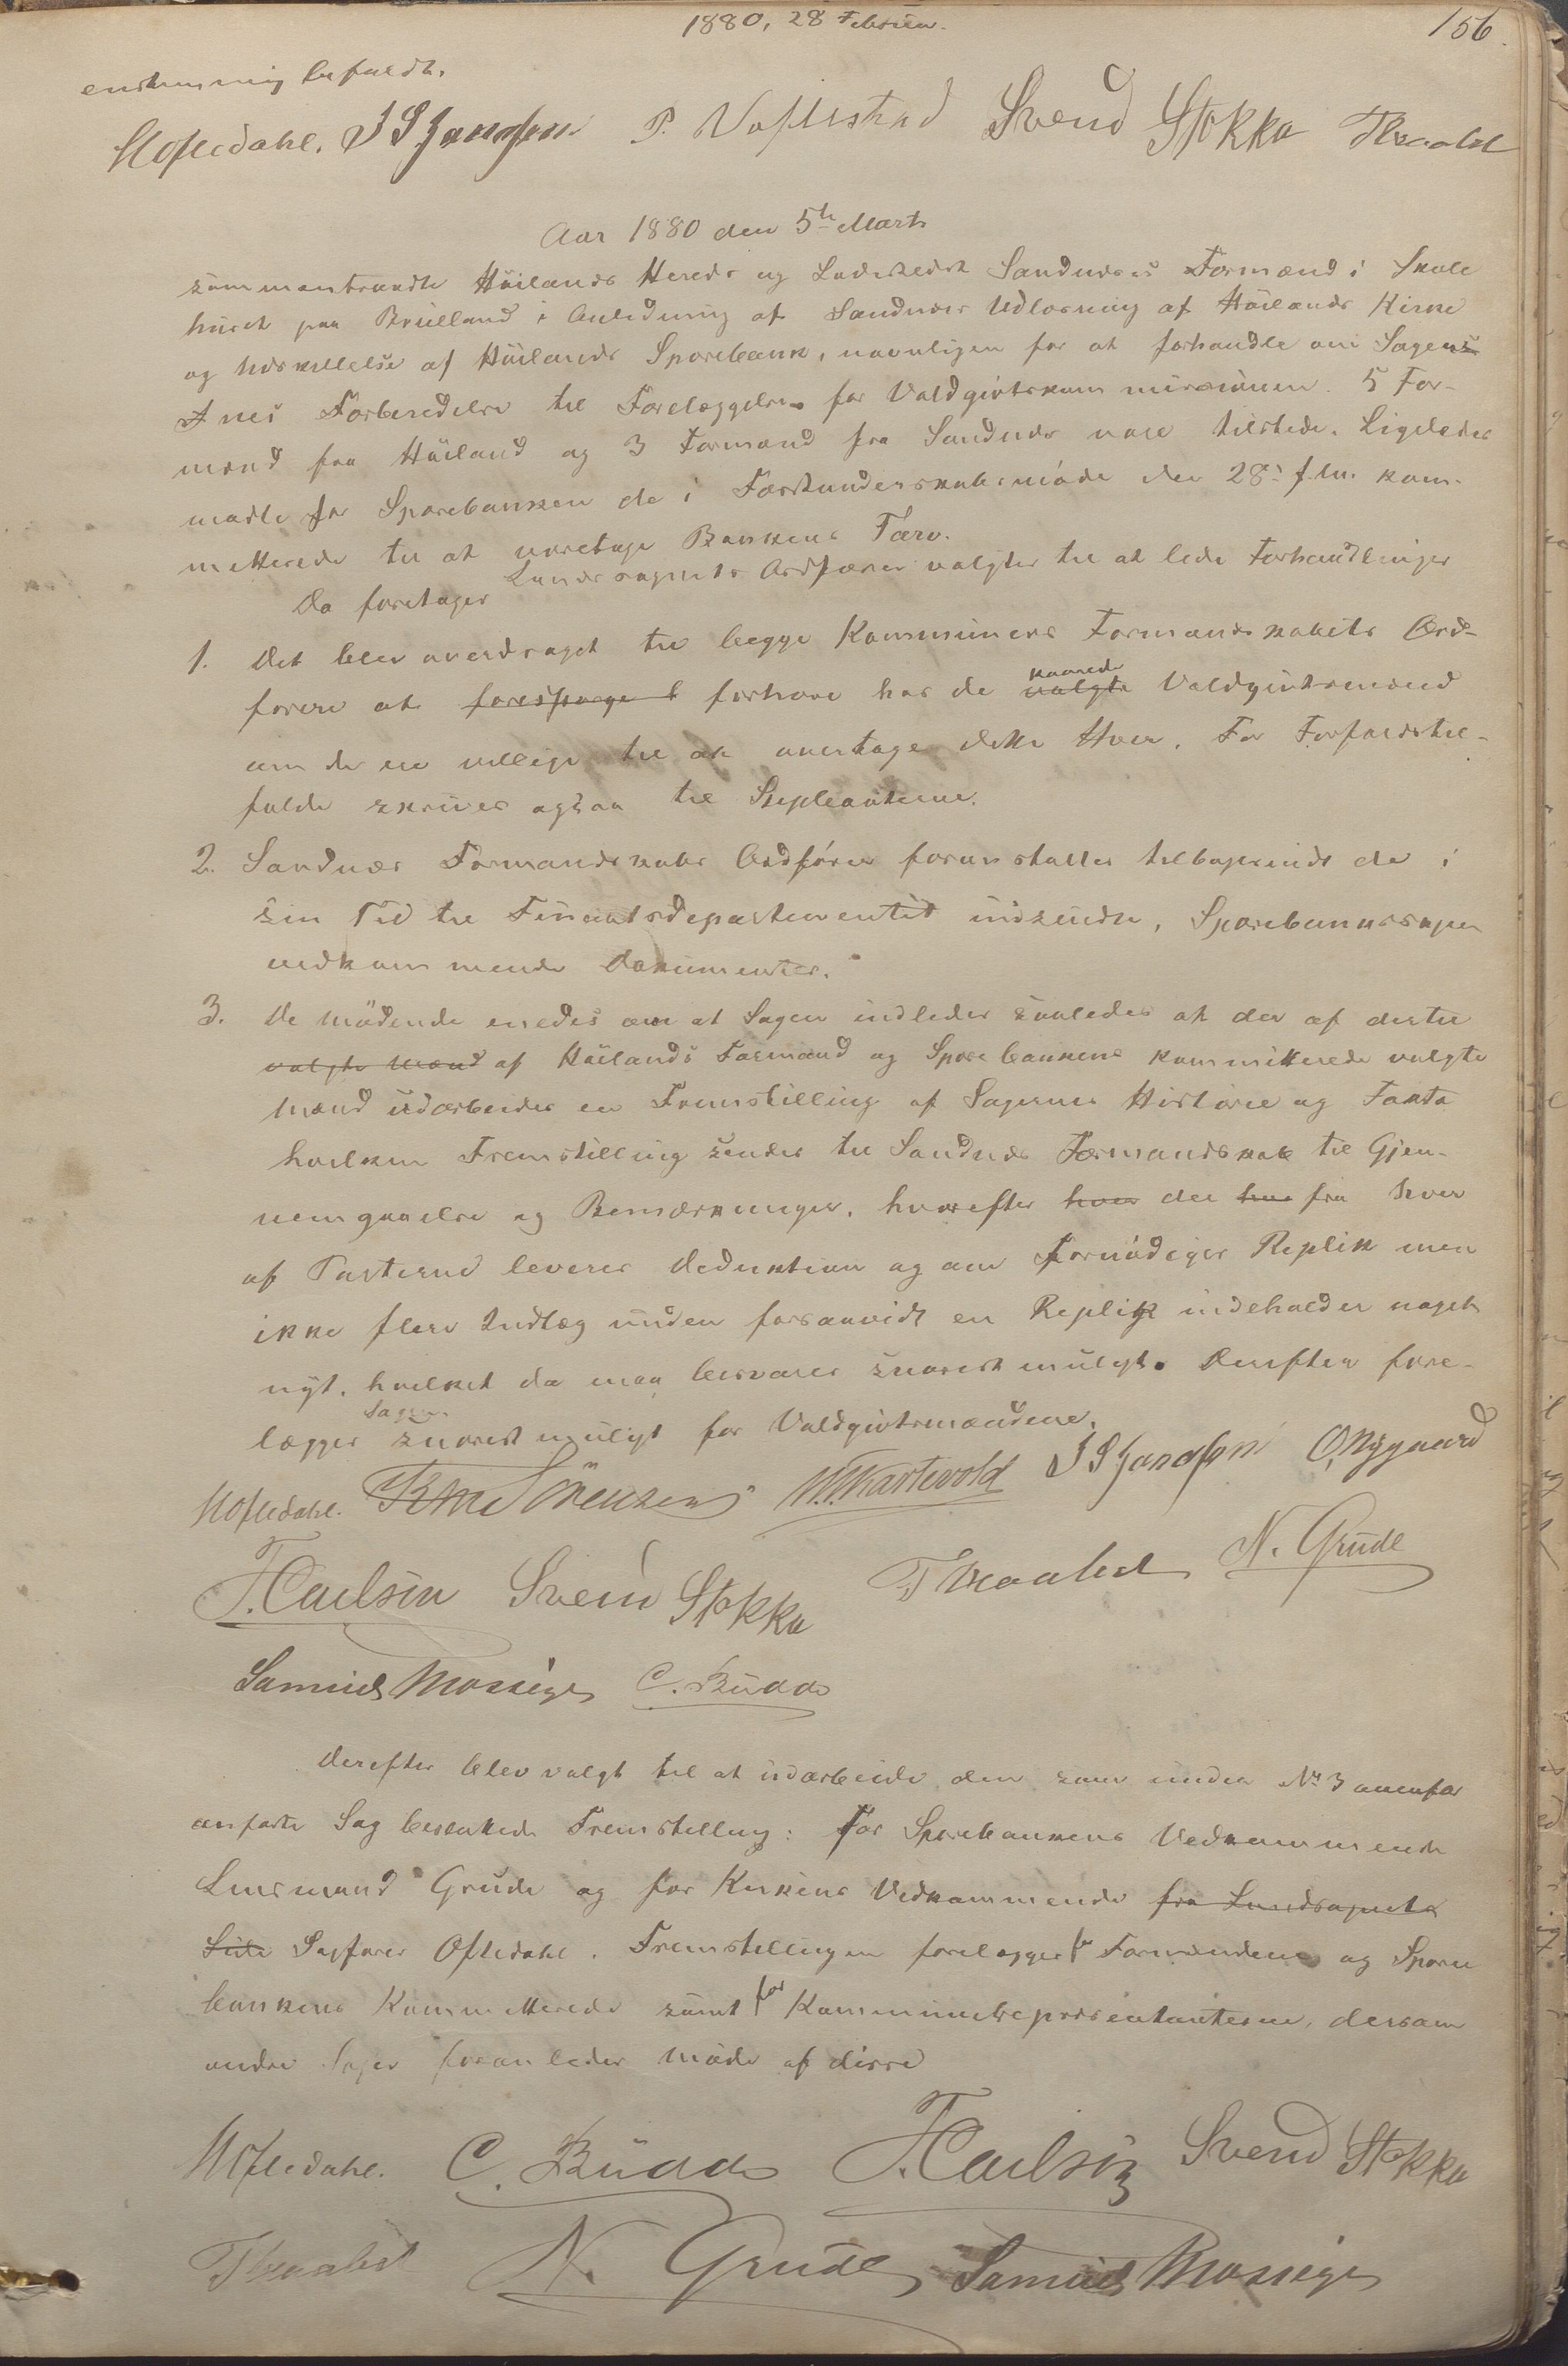 1880, 28 Februar.
156.
enstemmig bifaldt.
M Oftedahl. I S Jonassen P. Vaststad Svend Stokka T Kraaled
Aar 1880 den 5te Marts
sammentraadte Höilands Hereds og Ladested Sandnæs's Formænd i Skole
huset paa Brueland i Anledning af Sandnæs Udlösning af Höilands Kirke
og Udskillelse af Höilands Sparebank, navnligen for at forhandle om Sagens
Forberedelse til Forelæggelse for Voldgivtskommissionen. 5 For-
mænd fra Höiland og 3 Formænd fra Sandnæs vare tilstede. Ligeledes
mödte for Sparebanken de i Forstanderskabsmöde den 28de f. M. kom-
mitterede til at varetage Bankens Tarv.
Da foretages Landsognets Ordförer valgtes til at lede Forhandlinger
1. Det blev overdraget til begge Kommuners Formandskabets Ord-
förere at forespörge forhöre hos de valgte kaarede Voldgivtsmænd
om de ere villige til at overtage dette Hverv. For Forfaldstil-
fælde skrives ogsaa til Suppleanterne.
2. Sandnæs Formandskabs Ordförer foranstalter tilbagesendt de i
sin Tid til Finantsdepartementet indsendte, Sparebankssagen
vedkommende Dokumenter.
3. De mödende enedes om at Sagen indledes saaledes at der af dertil
valgte Mænd af Höilands Formænd og Sparebankens kommitterede valgte
Mænd udarbeides en Fremstilling af Sagernes Historie og Fakta
hvilken Fremstilling sendes til Sandnæs Formandskab til Gjen-
nemgaaelse og Bemærkninger, hvorefter hver der hver fra hver
af Parterne leveres Deduktion og om fornödiges Replik men
ikke flere Indlæg uden forsaavidt en Replik indeholder noget
nyt, hvilket da maa besvares snarest muligt. Derefter fore-
lægges Sagen snarest muligt for Voldgivtsmændene.
M Oftedahl. Sörensen W. Kartevold I S Jonassen O. Nygaard
T. Carlsen Svend Stokka T Kraaled N. Grude
Samuel Mossige C. Budde
Derefter blev valgt til at udarbeide den som under No 3 ovenfor
anförte Sag besluttede Fremstilling: For Sparebankens Vedkommende
Lensmand Grude og for Kirkens Vedkommende fra Landsognets
Side Sagförer Oftedahl. Fremstillingen forelægges for Formændene og Spare
bankens Kommitterede samt for Kommunerepræsentanterne, dersom
andre Sager foranlediger Möde af disse
M Oftedahl. C. Budde T. Carlsen Svend Stokka
T Kraaled N. Grude Samuel Mossige